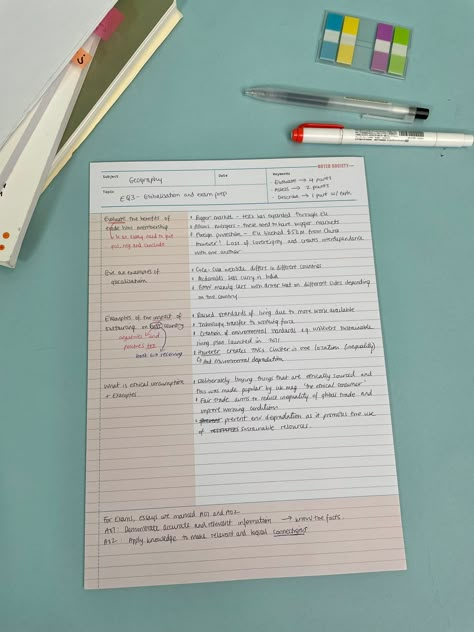 NOTES SOCIETY
Subject Geography
Date
Keywords
Topic EQ3 - Globalisation and exam prep
Evaluate → 4 points
Assess → 2 points
Describe → 1 point w/
Evaluate the benefits of
trade bloc membership
put and conclude
• Bigger market - TESCO has expanded through EU
• Allows mergers - these need to have bigger markets
• Foreign protection - EU blocked from China
However: Loss of sovereignty and creates interdependence
with one another
Give an examples of
glocalisation
• Coca Cola website differs in different countries
• McDonalds sells curry in India
• making cars with driver seat on different sides depending
on the country
Examples of the impact of
outsourcing on host country
negatives and
positives too
host = receiving
• Raised standards of living due to more work available
• Technology transfer to working force
• Creation of environmental standards e.g. unilever sustainable
living plan launched in 2011
• However creates TNCs cluster in one location (inequality)
and environmental degradation
What is ethical consumption
+ Examples
• Deliberately buying things that are ethically sourced and
this was made popular by uk mag 'the ethical consumer'
• Fair trade aims to reduce inequality of global trade and
improve working condition
• prevent env degradation as it promotes the use
of resources sustainable resources.
For Exams, essays we marked AO1 and AO2
AO1: Demonstrate accurate and relevant information → know the facts.
AO2: Apply knowledge to make relevant and logical connections